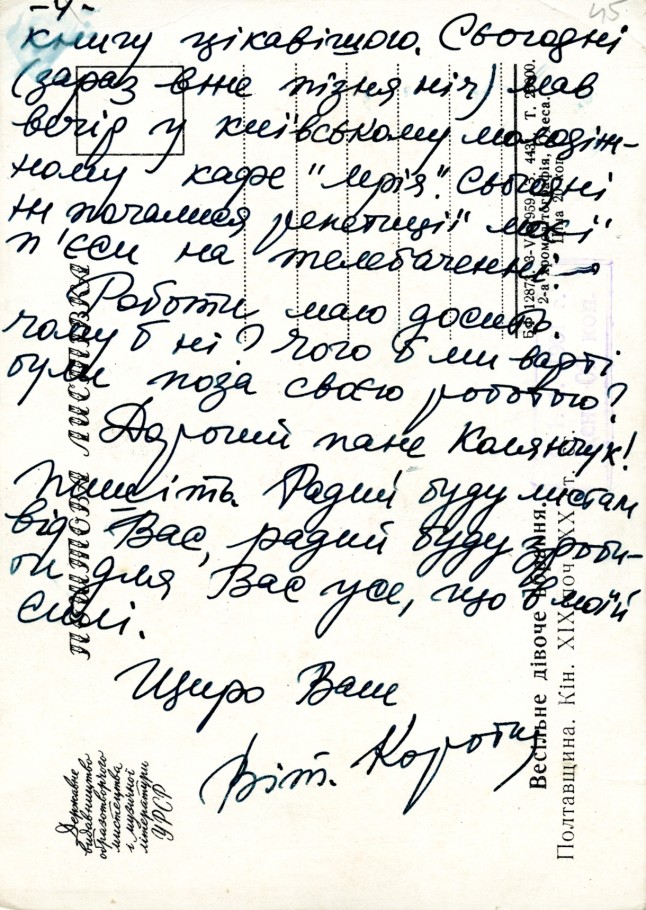 -4-
45
книгу цікавішою. Сьогодні
(зараз вже пізня ніч) мав
вечір у київському молодіж-
ному кафе "Мрія". Сьогодні
ж почалися репетиції моєї
п'єси на телебаченні –
Роботи маю досить.
Чому б ні? Чого б ми варті
були поза своєю роботою?
Дорогий пане Колянчук!
Пишіть. Радий буду листам
від Вас, радий буду зроби-
ти для Вас усе, що в моїй
силі.
Щиро Ваш
Віт. Коротич
поштова листівка
Державне
видавництво
образотворчого
мистецтва
і музичної
літератури
УРСР
Весільне дівоче вбрання.
Полтавщина. Кін. XIX поч. XX ст.
2-а хромолітографія, Одеса.